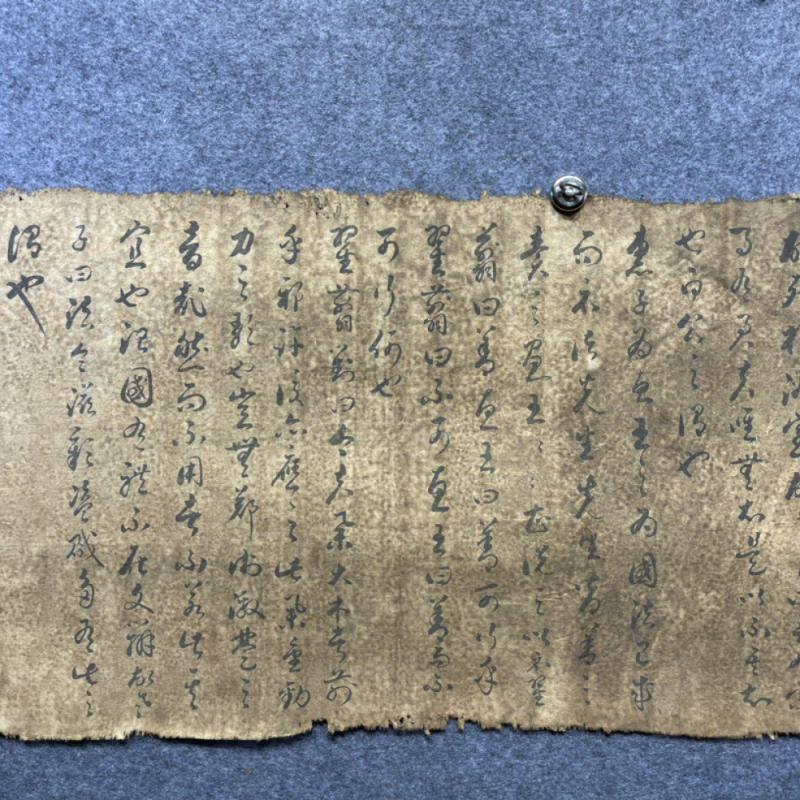 有君夫唯無知是以不吾知
也白公之謂也
惠子為惠王之為國法已成
而示諸先生先生皆善之
奏之惠王々甚說之以示翟
翦曰善惠王曰善可行乎
翟翦曰不可惠王曰善而不
可行何也
翟翦對曰今夫舉大木者前
乎邪許後亦應之此舉重勸
力之歌也豈無鄭衛激楚之
音哉然而不用者不若此其
宜也治國有禮不在文辯故老
子曰法令滋彰盜賊多有此之
謂也